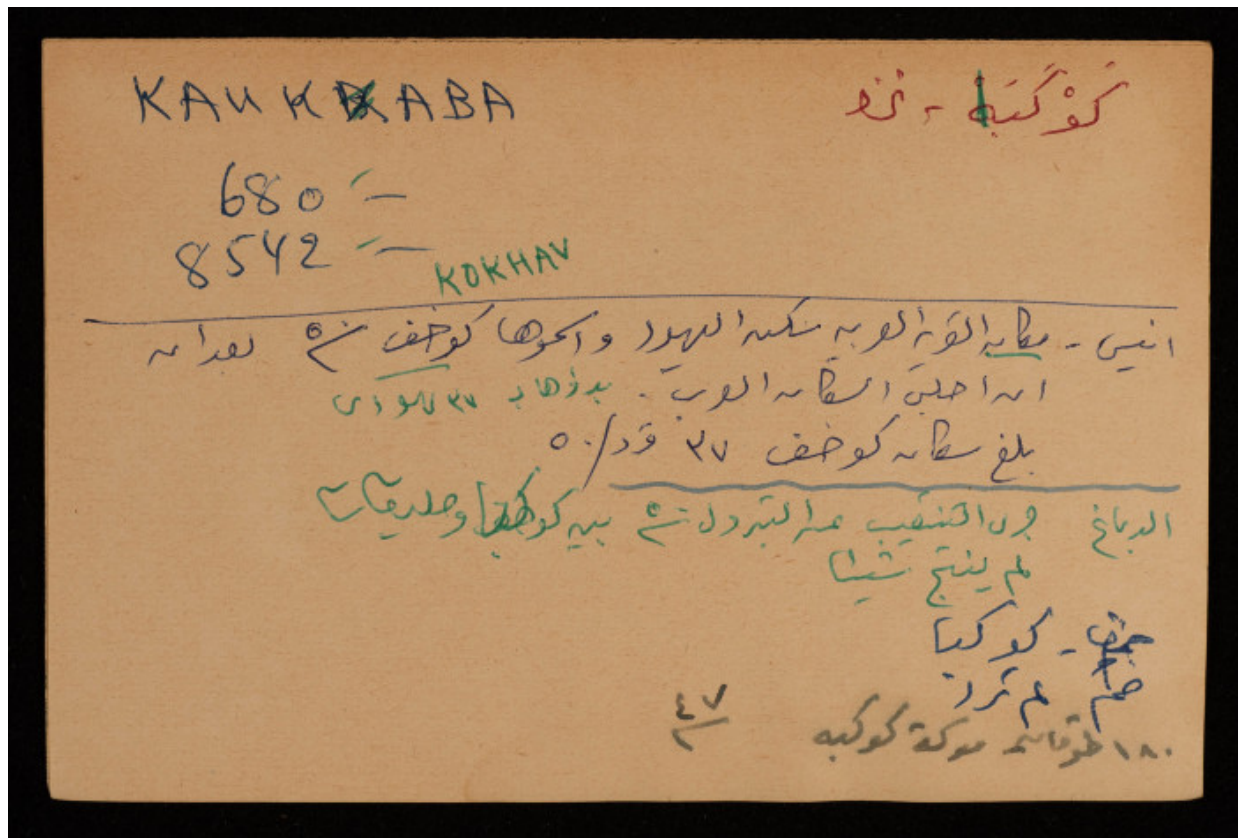 KAUKABA
كَوْكَبَا - غزة
680 -
8542 -
KOKHAV
انيس - مكان القرية العربية سكنه اليهود واسموها كوخف بعد ان
اجلي السكان العرب .
بلغ سكان كوخف ٣٧ فرد
الدباغ جرى التنقيب عن البترول بين كوكبا وحليقات
لم ينتج شيئا
كوكبا
لم ترد
١٨٠ معركة كوكبه ٤٧